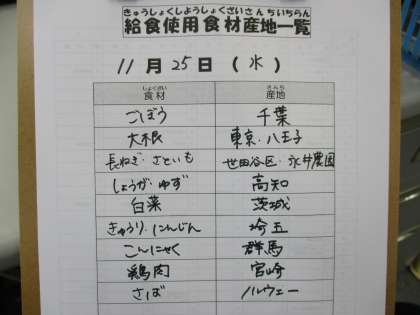 きゅうしょくしようしょくざいさんちいちらん
給食使用食材産地一覧
11月25日(水)
しょくざい さんち
食材 産地
ごぼう 千葉
大根 東京・八王子
長ねぎ・さといも 世田谷区・永井農園
しょうが・ゆず 高知
白菜 茨城
きゅうり・にんじん 埼玉
こんにゃく 群馬
鶏肉 宮崎
さば ノルウェー